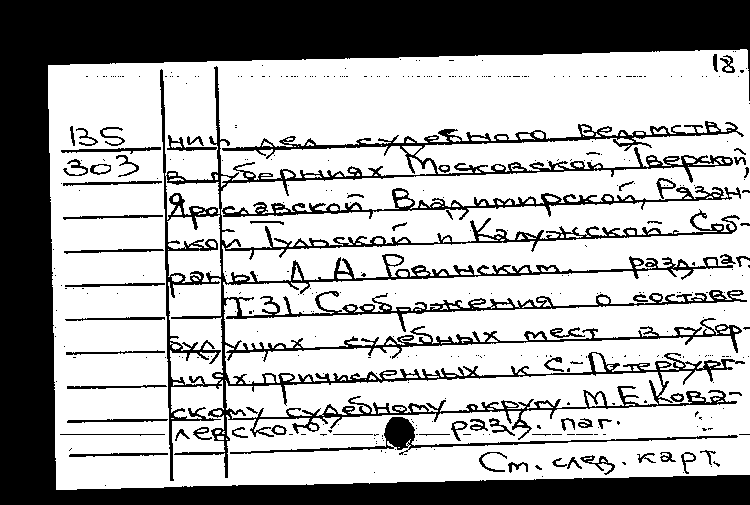 18.
135 нии дел судебного ведомства
303 в губерниях Московской, Тверской,
Ярославской, Владимирской, Рязан-
ской, Тульской и Калужской. Соб-
раны Д. А. Ровинским. разд. паг.
Т.31. Соображения о составе
будущих судебных мест в губер-
ниях, причисленных к С.-Петербург-
скому судебному округу. М.Е. Кова-
левского. разд. паг.
См. след. карт.